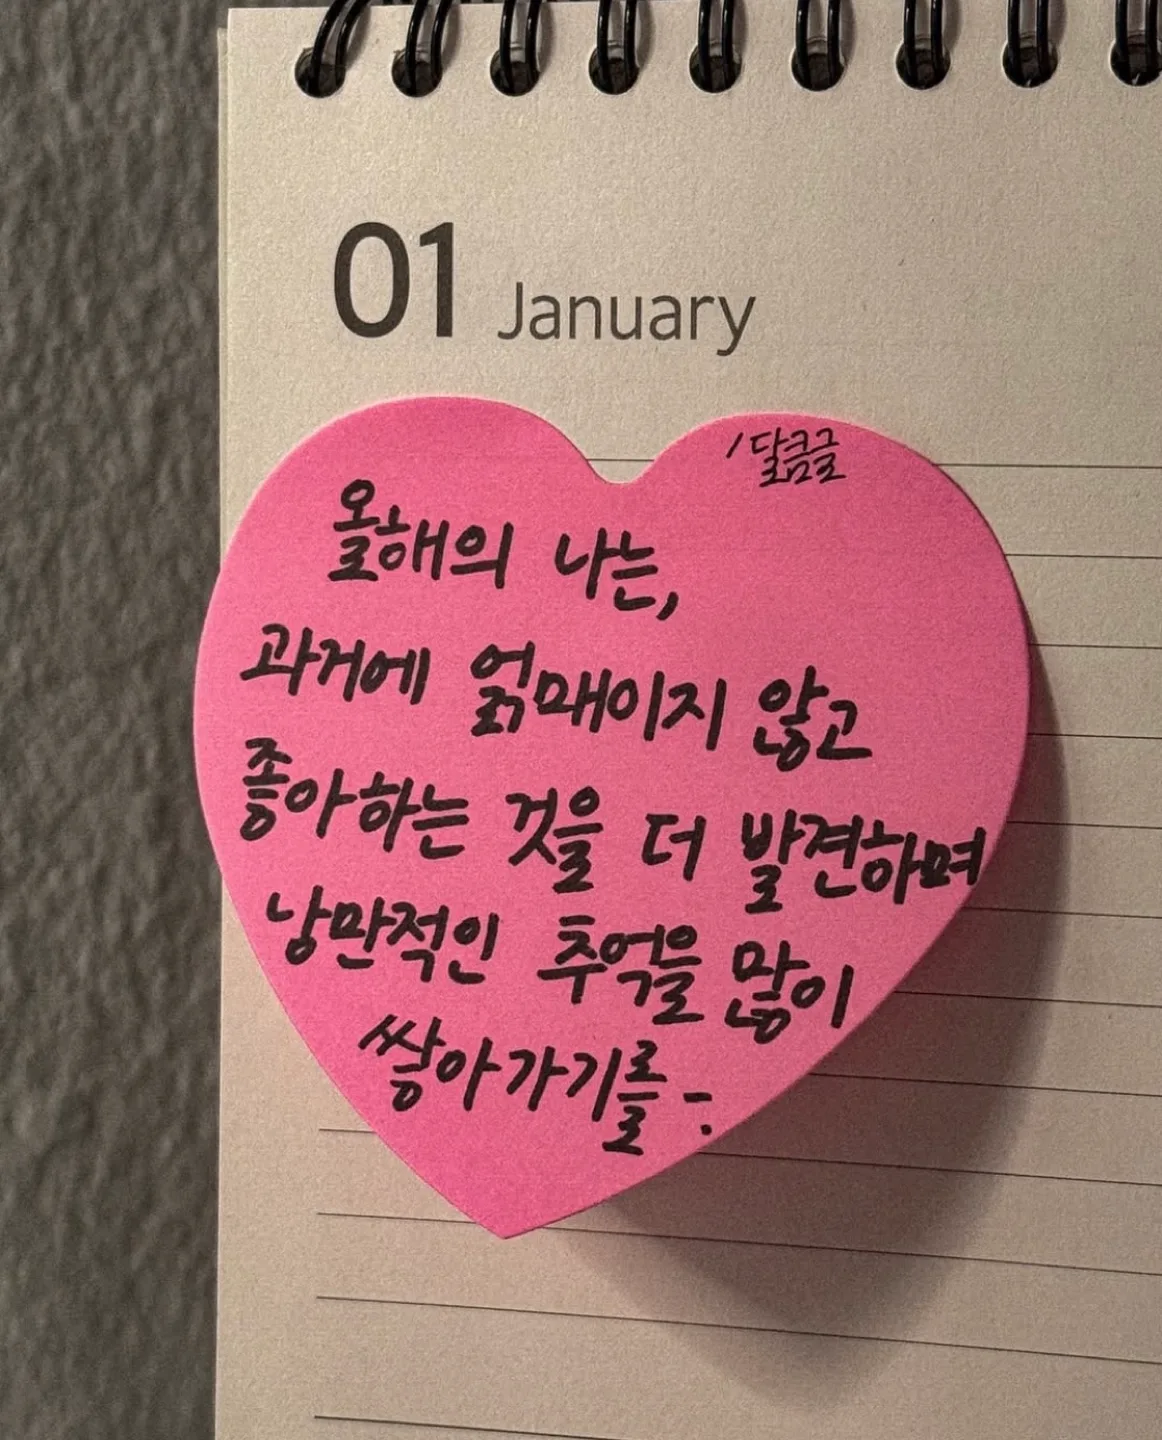 01 January
/달콤글
올해의 나는,
과거에 얽매이지 않고
좋아하는 것을 더 발견하며
낭만적인 추억을 많이
쌓아가기를-: